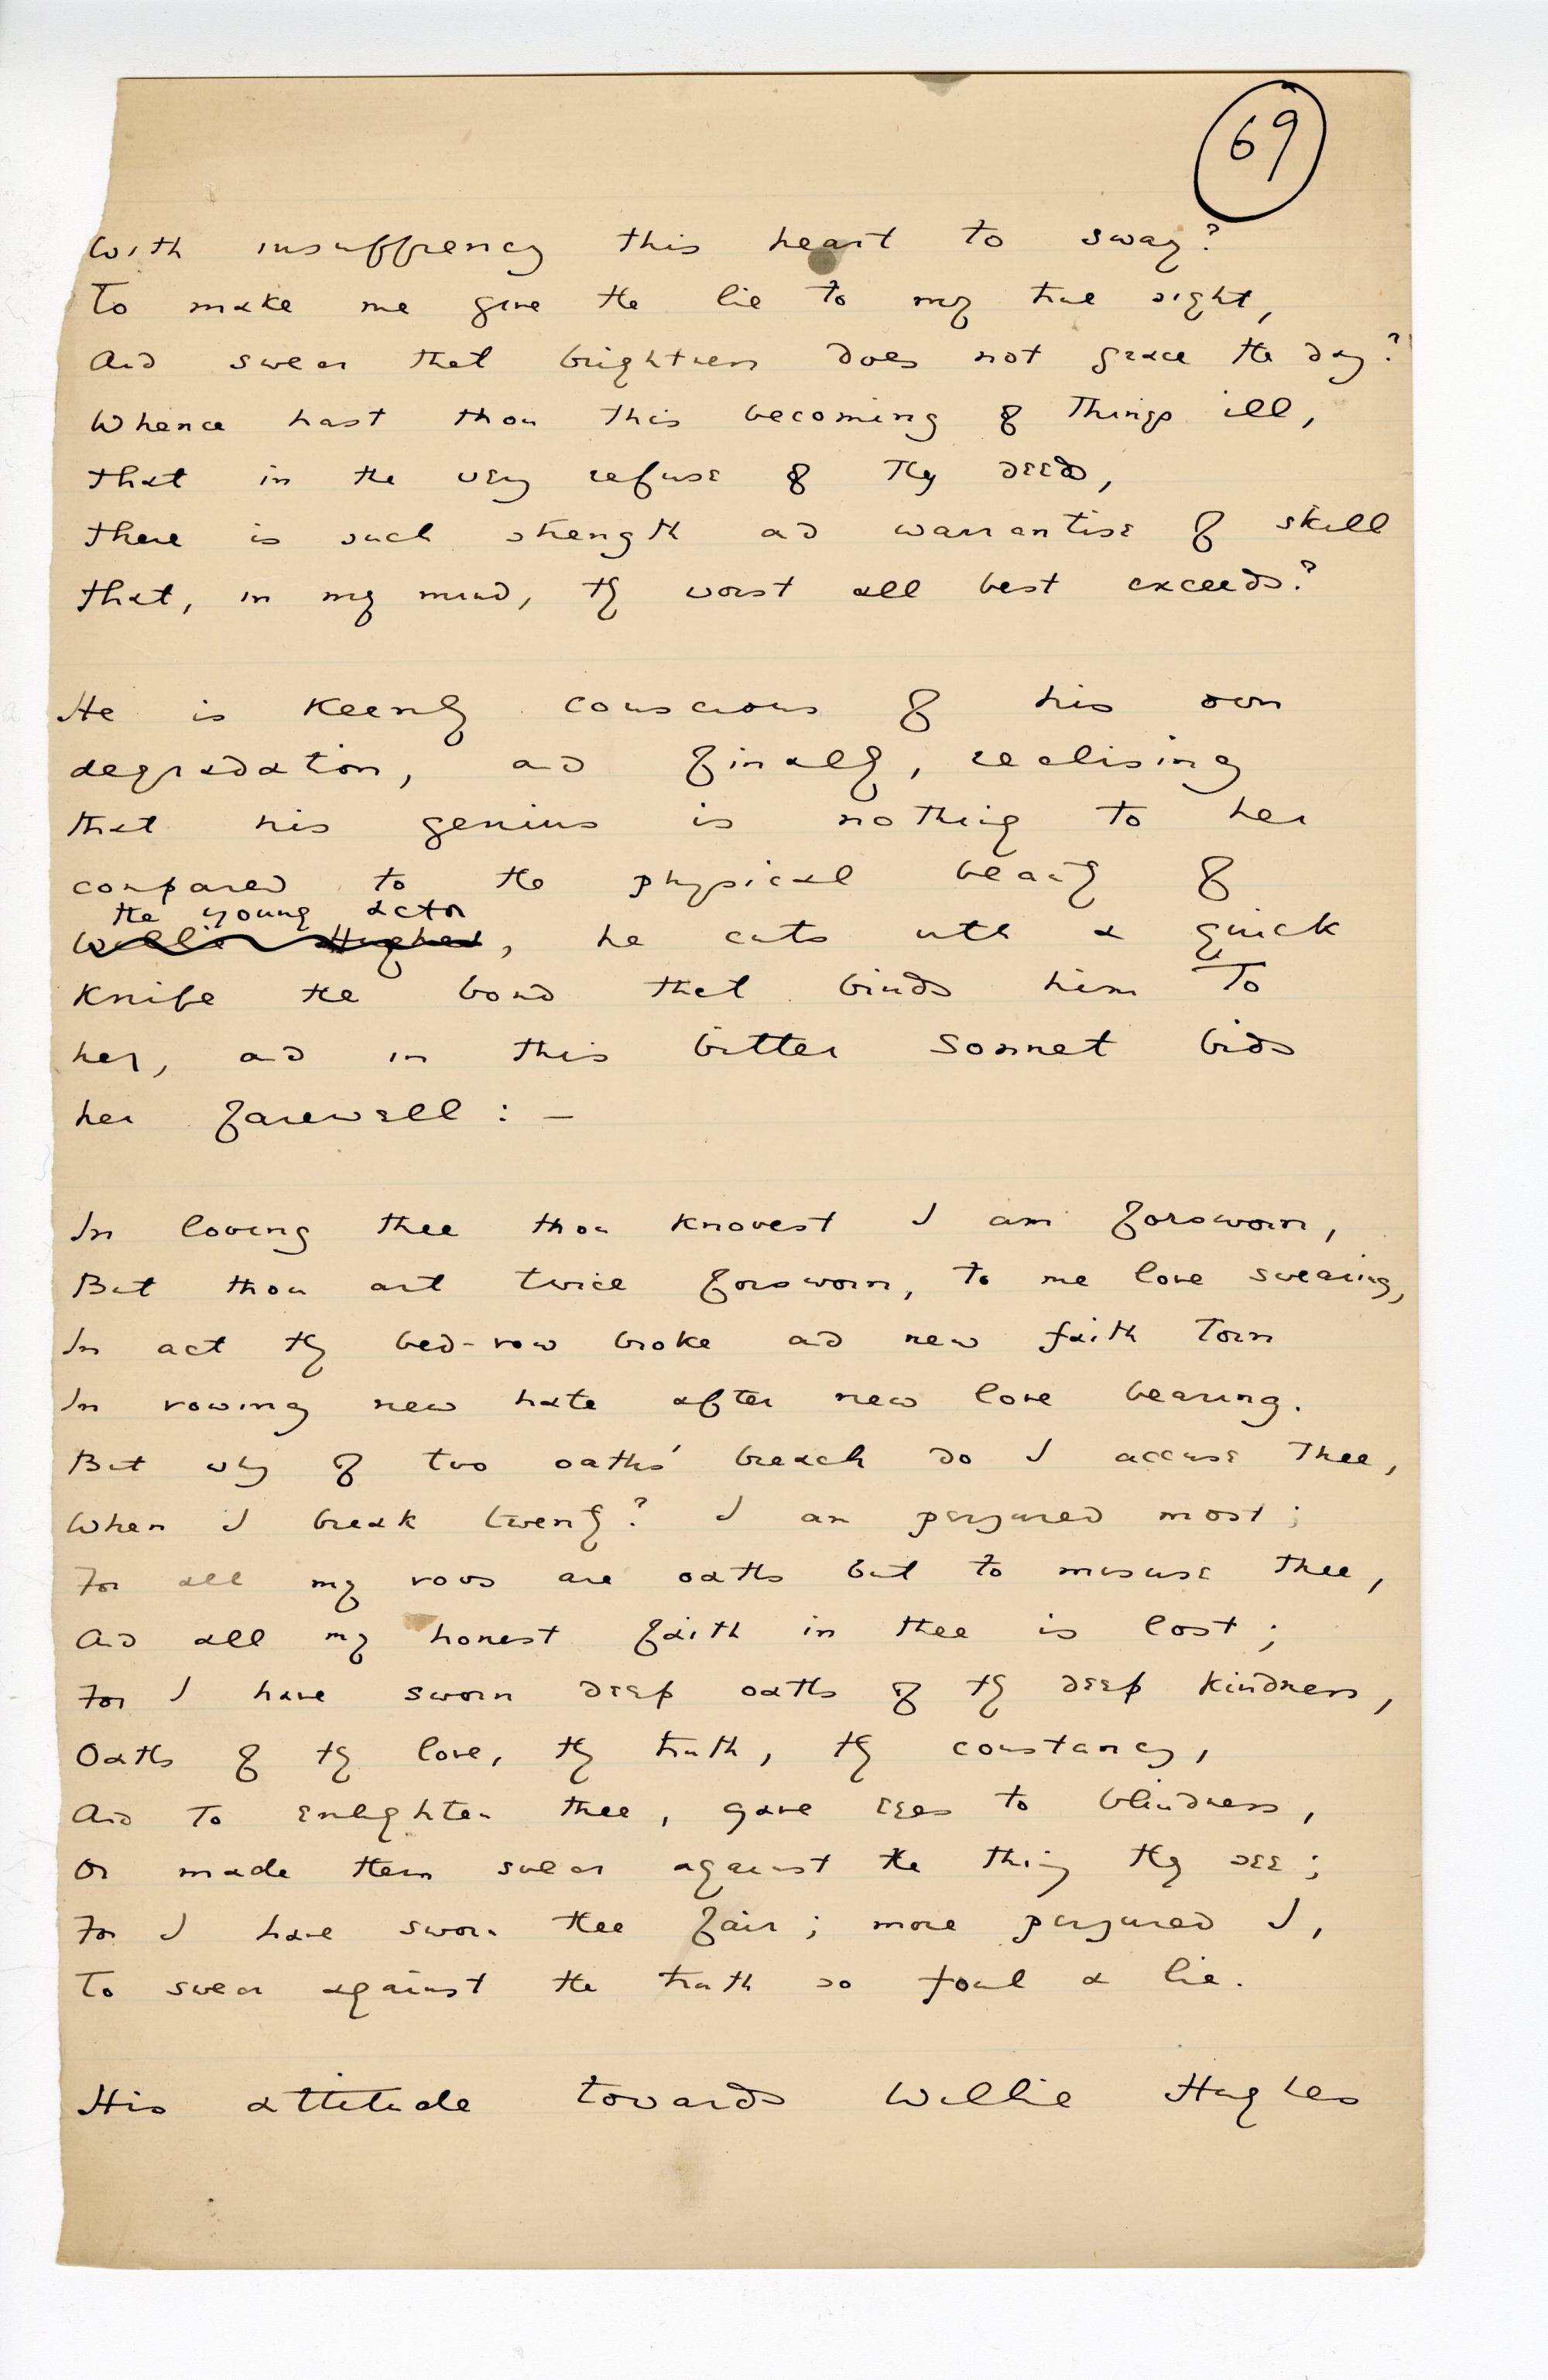 69
With insuffiency this heart to sway?
To make me give the lie to my true sight,
And swear that brightness does not grace the day?
Whence hast thou this becoming of things ill,
That in the very refuse of thy deeds,
There is such strength and warrantise of skill
That, in my mind, thy worst all best exceeds?
He is keenly conscious of his own
degradation, and finally, realising
that his genius is nothing to her
compared to the physical beauty of
the young actor
Willie Hughes, he cuts with a quick
knife the bond that binds him to
her, and in this bitter sonnet bids
her farewell : —
In loving thee thou knowest I am forsworn,
But thou art twice forsworn, to me love swearing,
In act thy bed-vow broke and new faith torn
In vowing new hate after new love bearing.
But why of two oaths' breach do I accuse thee,
When I break twenty? I am perjured most;
For all my vows are oaths but to misuse thee,
And all my honest faith in thee is lost;
For I have sworn deep oaths of thy deep kindness,
Oaths of thy love, thy truth, thy constancy,
And to enlighten thee, gave eyes to blindness,
Or made them swear against the thing they see;
For I have sworn thee fair; more perjured I,
To swear against the truth so foul a lie.
His attitude towards Willie Hughes